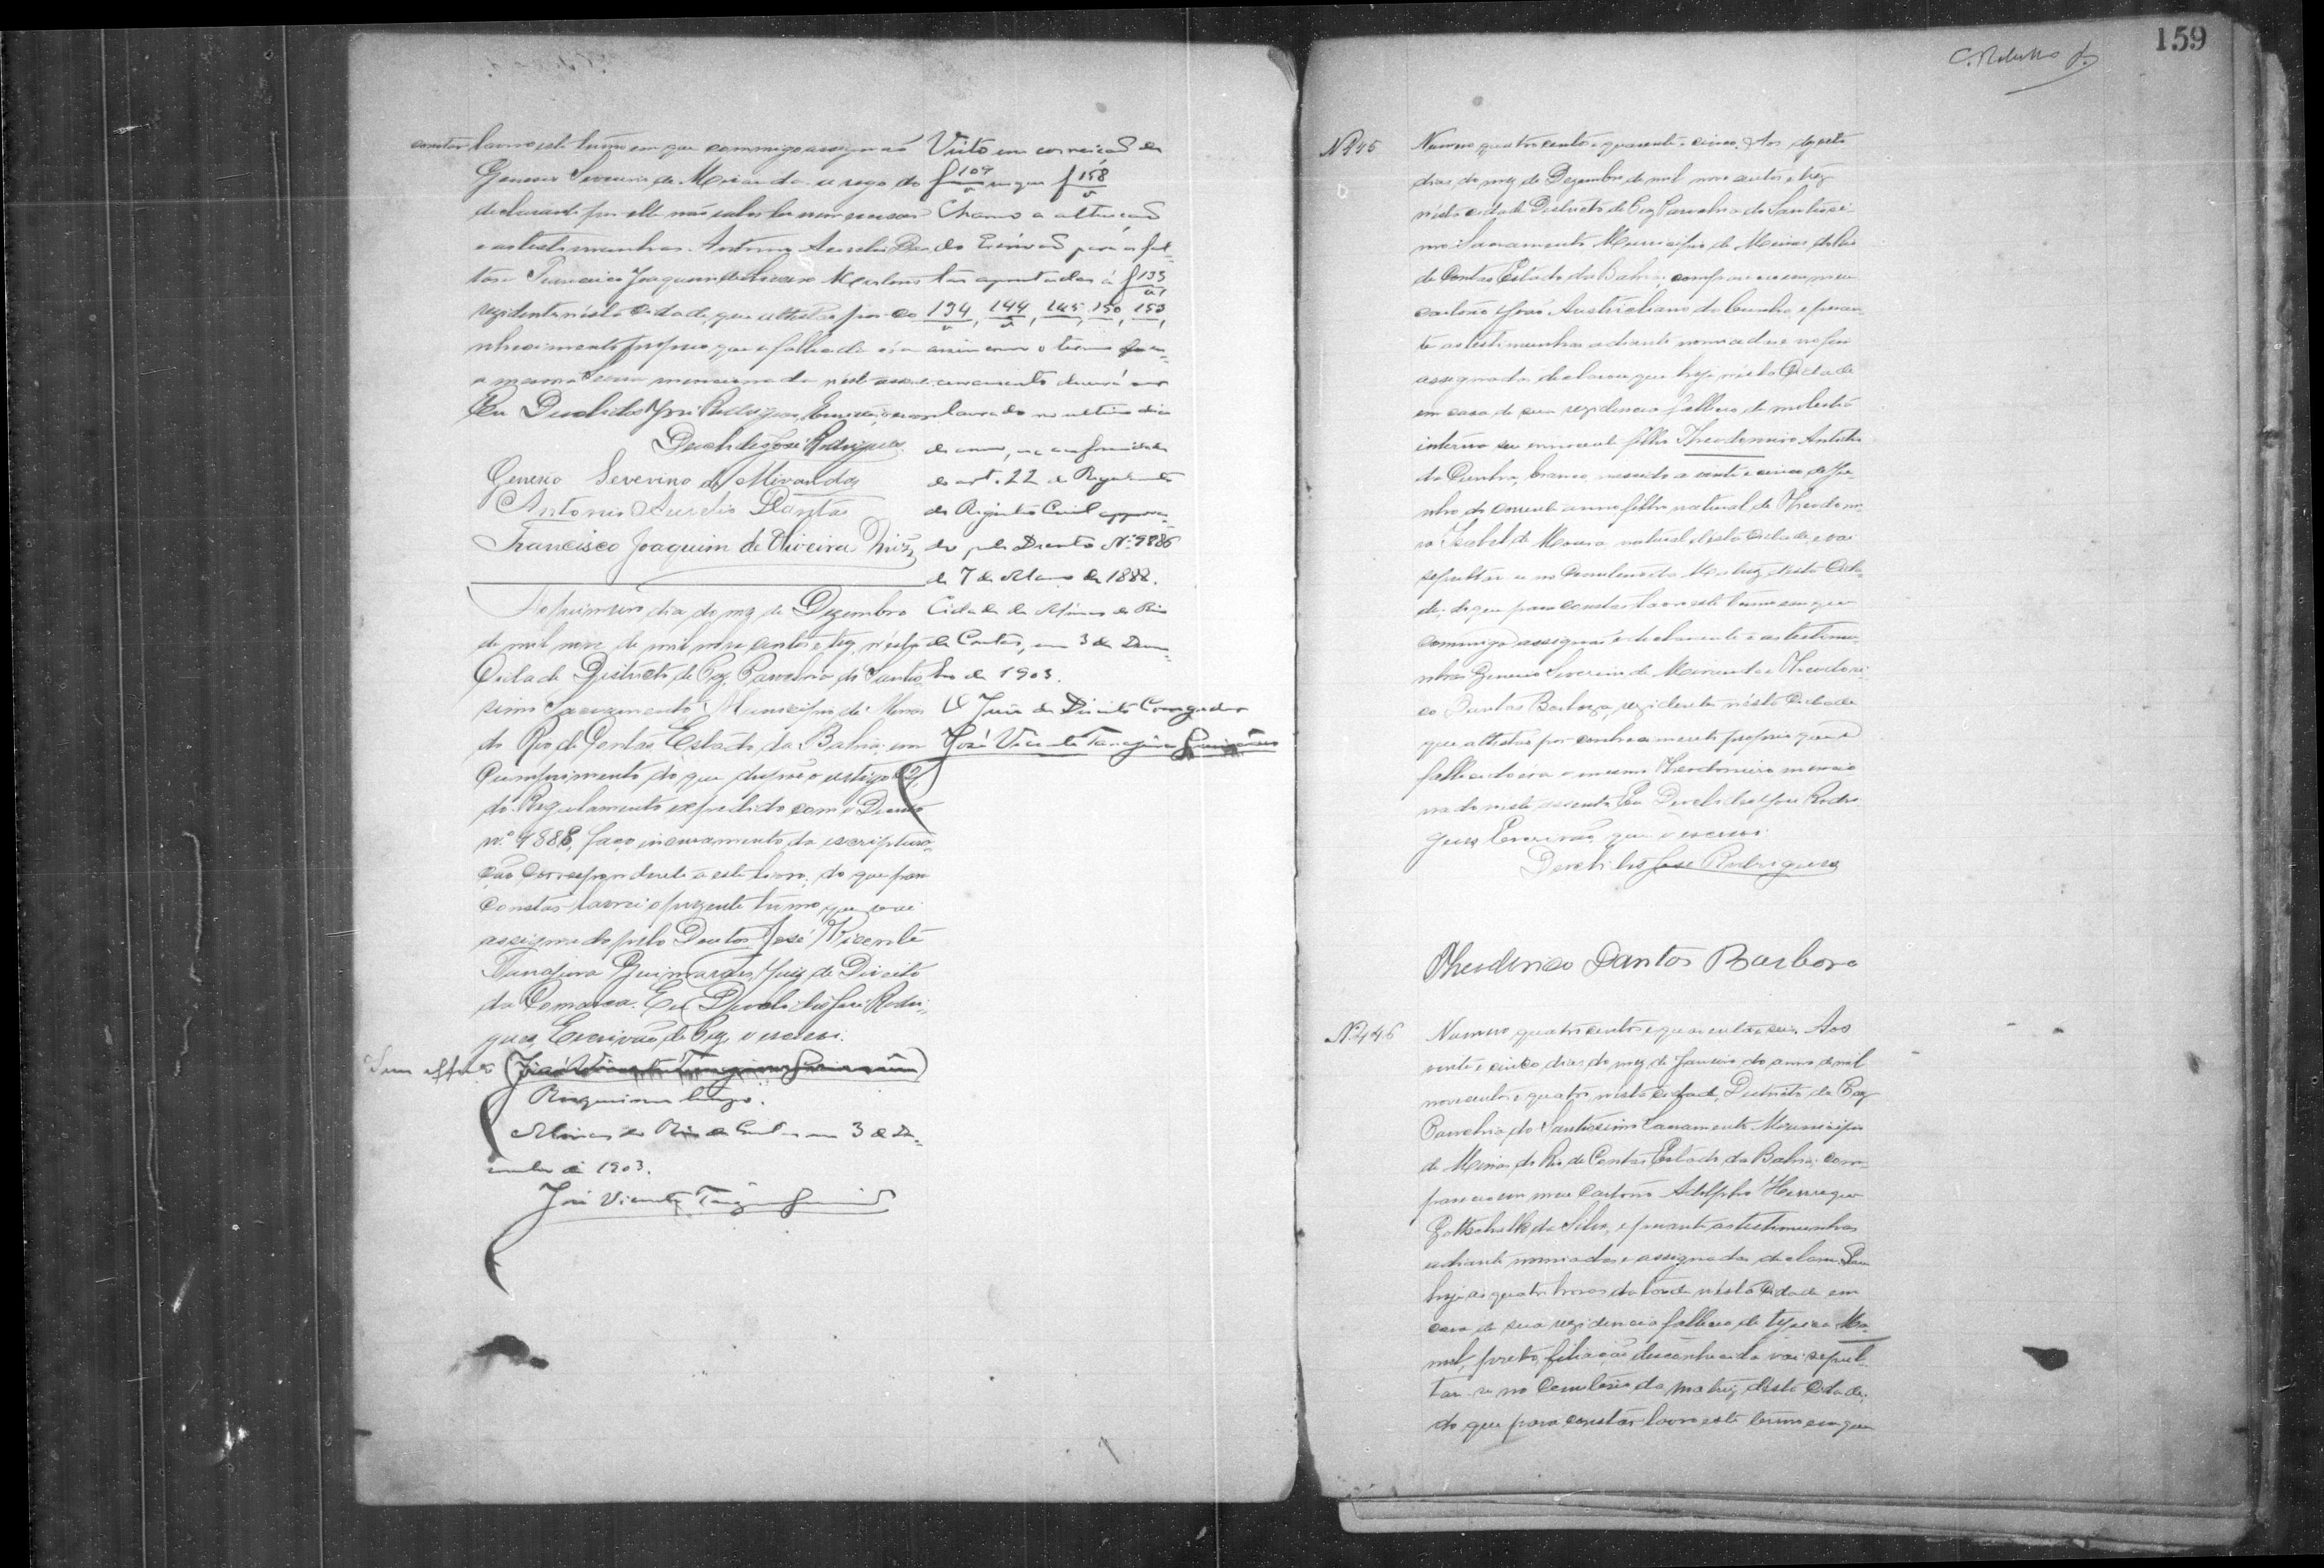 constar lavro este termo em que commigo assignão
Genesio Severino de Miranda a rogo do
declarante por elle não saber ler nem escrever
e as testemunhas Antonio Aurelio Dan-
tas e Francisco Joaquim de Oliveira
rezidentes nésta Cidade, que attestão por co-
nhecimento proprio que a fallecida éra
a mesma mencionada néste assento
Eu Deuclides José Rodrigues, Escrivão
Deuclides José Rodrigues
Genesio Severino de Miranda
Antonio Aurelio Dantas
Francisco Joaquim de Oliveira
Ao primeiro dia do mez de Dezembro
de mil nove de mil nove centos e trez, nésta
Cidade Districto de Paz, Parochia do Santis-
simo Sacramento Municipio de Minas
do Rio de Contas Estado da Bahia; em
Cumprimento do que dispõe o artigo 22
do Regulamento expedido com o Decreto
nº 9886, faço incerramento da escriptura-
ção correspondente a este livro; do que para
constar lavrei o prezente termo que vae
assignado pelo Doutor José Vicente
Tanajura Guimarães, Juiz de Direito
da Comarca. Eu Deuclides José Rodri-
gues, Escrivão de Paz o escrevi.
Sem effeito (José Vicente Tanajura Guimarães)
Minas do Rio de Contas em 3 de De-
zembro de 1903.
José Vicente Tanajura Guimarães
Visto em correição de
f 109 v f 158 v
Chamo a attenção
do Escrivão para as fal-
tas apontadas á f 133
134, 144, 145, 150, 153,
assim como o termo de en-
cerramento deverá ser
lavrado no ultimo dia
do anno, na conformidade
do art. 22 do Regulamento
do Registro Civil approva-
do pelo Decreto Nº 9886
de 7 de Março de 1888.
Cidade de Minas do Rio
de Contas, em 3 de Dezem-
bro de 1903.
O Juiz de Direito Corregedor
José Vicente Tanajura Guimarães
159
Nº 445
Numero quatro centos e quarenta e cinco. Aos dezete
dias do mez de Dezembro de mil nove centos e trez
nésta cidade Districto de Paz Parochia do Santissi-
mo Sacramento Municipio de Minas do Rio
de Contas Estado da Bahia; compareceu em meu
cartorio João Austricliano da Cunha, e peran-
te as testemunhas adiante nomiadas e no fim
assignadas declarou que hoje nésta Cidade
em casa de sua rezidencia falleceu de molestia
interna seu innocente filho Theodomiro
da Cunha, branco, nascido a vinte e cinco de Ju-
nho do corrente anno filho natural de Theodo-
ra Izabel de Moura natural désta Cidade, e vai
sepultar-se no Cemiterio da Matriz désta Cida-
de; do que para constar lavro este termo em que
commigo assignão o declarante e as testemu-
nhas Genesio Severino de Miranda e Theodori-
co Dantas Barboza, rezidentes nésta Cidade
que attestão por conhecimento proprio que o
fallecido éra o mesmo Theodomiro mencio-
nado néste assento. Eu Deuclides José Rodri-
gues, Escrivão que o escrevi.
Deuclides José Rodrigues
Theoderico Dantas Barbosa
Nº 446
Numero quatro centos e quarenta e seis. Aos
vinte e cinco dias do mez de Janeiro do anno de mil
nove centos e quatro nésta cidade, Districto de Paz
Parochia do Santissimo Sacramento Municipio
de Minas do Rio de Contas Estado da Bahia; com-
pareceu em meu Cartorio Adolpho Henrique
Gottschalk da Silva, e perante as testemunhas
adiante nomiadas e assignadas declarou que
hoje ás quatro horas da tarde nésta Cidade em
casa de sua rezidencia falleceu de tysica Ma-
noel, preto, filiação desconhecida vai sepul-
tar-se no Cemiterio da Matriz désta Cidade;
do que para constar lavro este termo em que